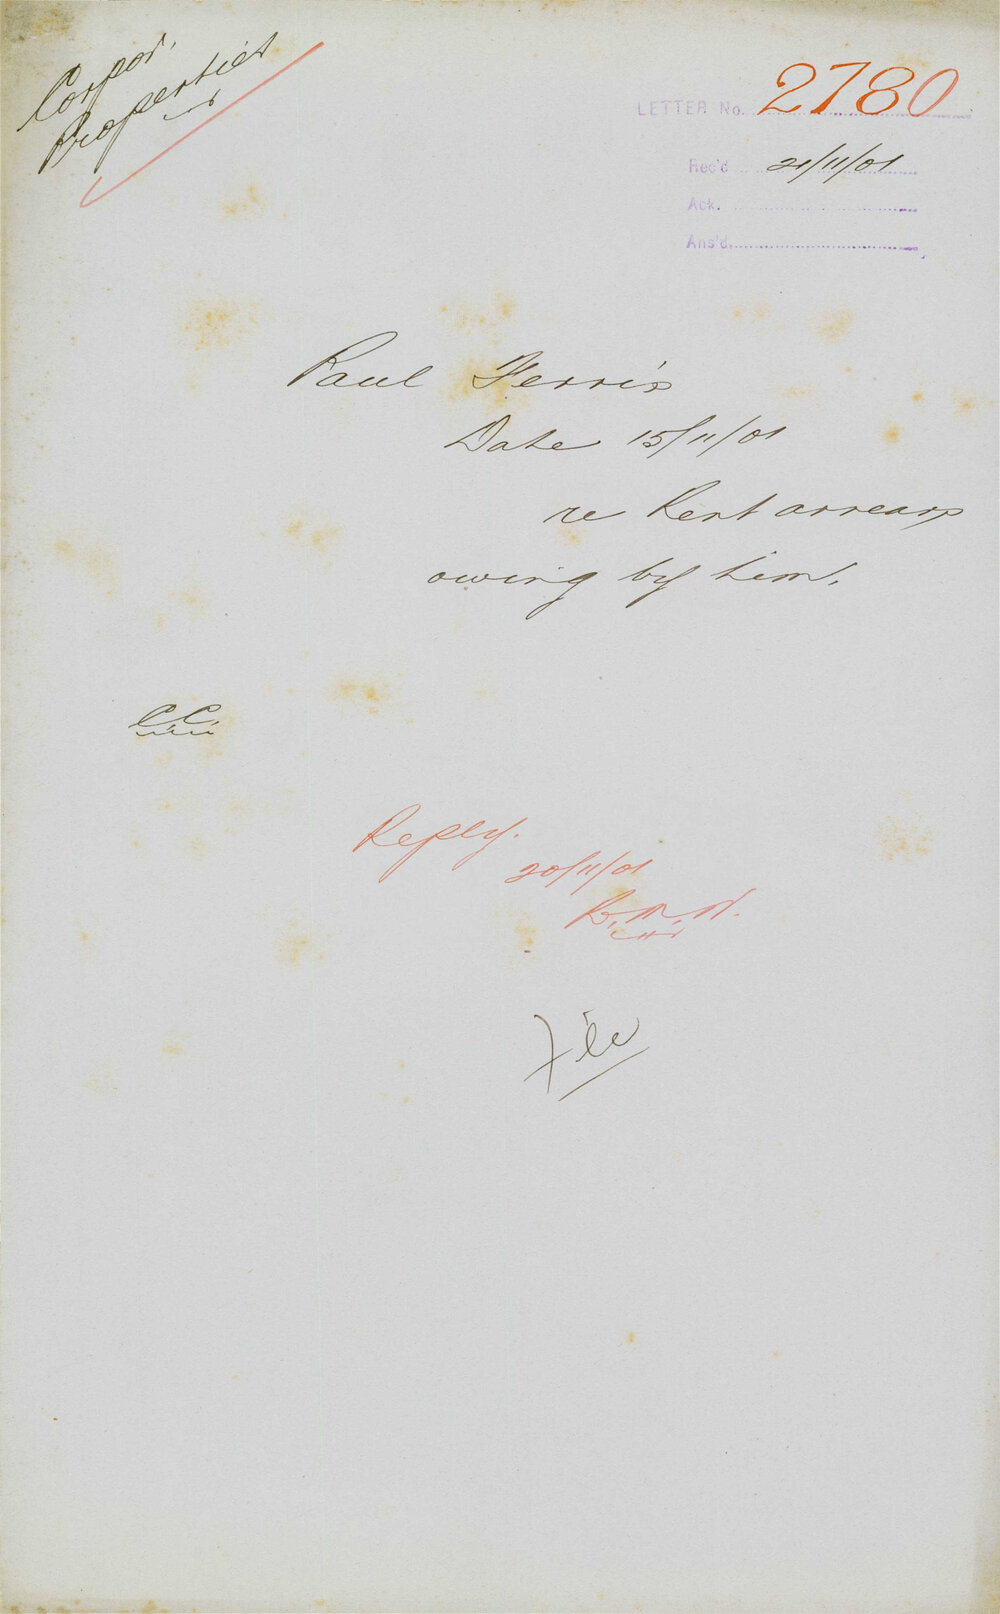 Corpor.
Properties
LETTER No. 2780
Rec'd 21/11/01
Ack.
Ans'd.
Paul Ferris
Date 15/11/01
re Rent arrears
owing by him.
CC.
Reply.
20/11/01
File